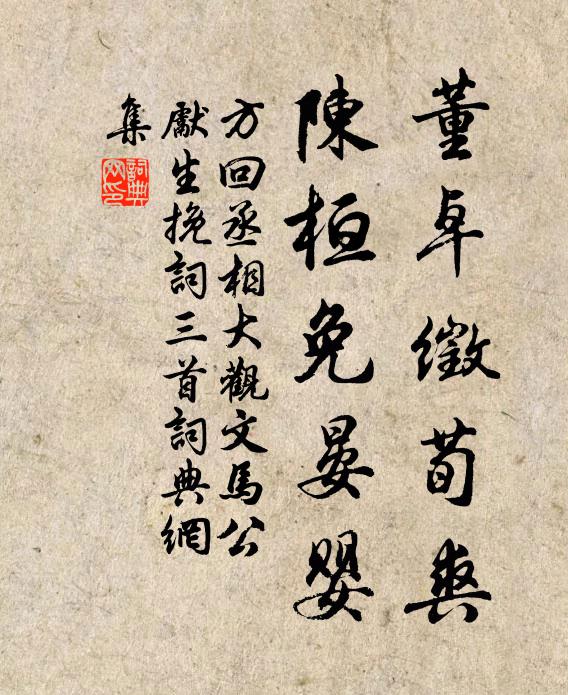 董卓徵荀爽
陳桓免晏嬰
方回丞相大觀文馬公
獻生挽詞三首詞典網
集
詞典
网印